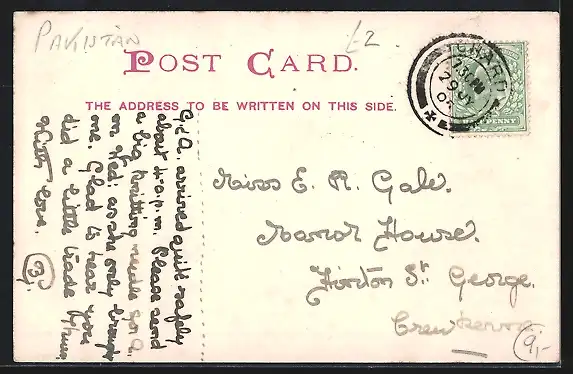 PAKISTAN
£2
POST CARD.
THE ADDRESS TO BE WRITTEN ON THIS SIDE.
CHARD
7.30PM
JY
29
HALFPENNY
G & A. arrived quite safely
about 4.0.p.m. Please send
a big knitting needle for A.
on Wed: as she only brought
one. Glad to hear you
did a little trade
With love.
Miss E. R. Gale.
Manor House.
Hinton St. George.
Crewkerne
9,-